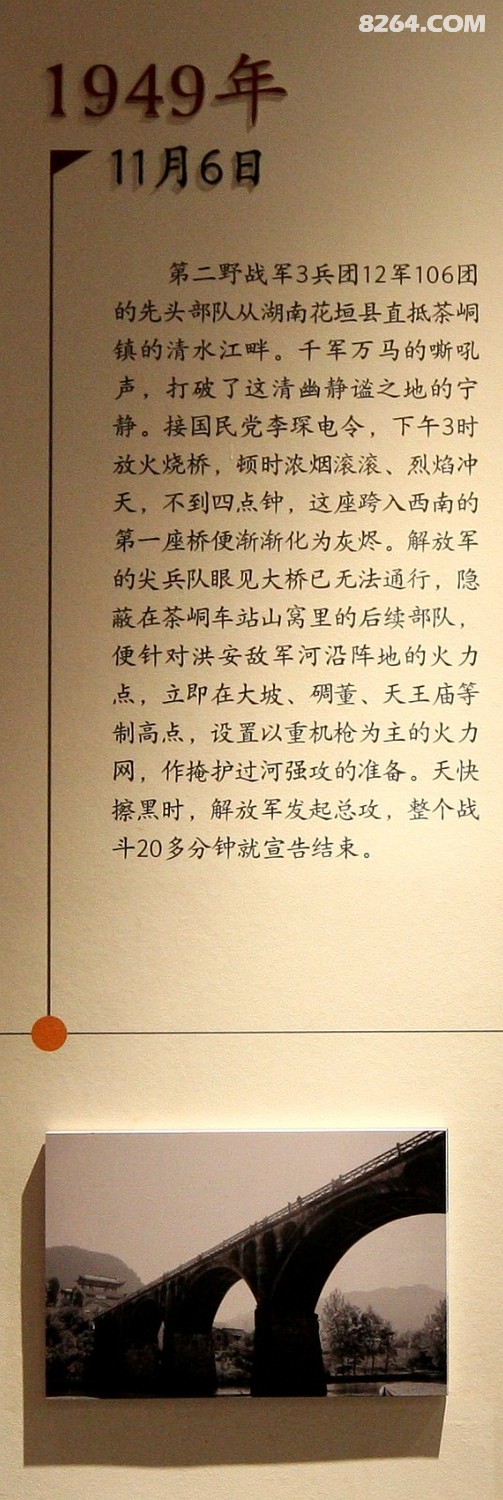 8264.COM
1949年
11月6日
第二野战军3兵团12军106团
的先头部队从湖南花垣县直抵茶峒
镇的清水江畔。千军万马的嘶吼
声，打破了这清幽静谧之地的宁
静。接国民党李琛电令，下午3时
放火烧桥，顿时浓烟滚滚、烈焰冲
天，不到四点钟，这座跨入西南的
第一座桥便渐渐化为灰烬。解放军
的尖兵队眼见大桥已无法通行，隐
蔽在茶峒车站山窝里的后续部队，
便针对洪安敌军河沿阵地的火力
点，立即在大坡、碉董、天王庙等
制高点，设置以重机枪为主的火力
网，作掩护过河强攻的准备。天快
擦黑时，解放军发起总攻，整个战
斗20多分钟就宣告结束。